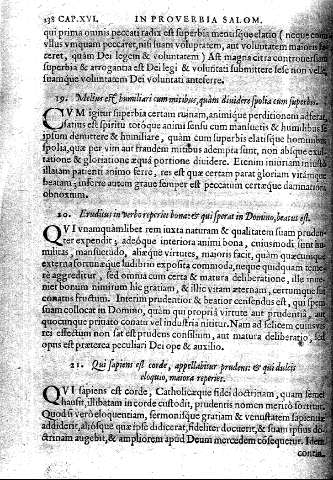 238 CAP.XVI. IN PROVERBIA SALOM.
qui prima omnis peccati radix est superbia mentisque elatio (neque enim
vllus vnquam peccaret, nisi suam voluptatem, aut voluntatem maioris fa-
ceret, quàm Dei legem & voluntatem) Ast magna citra controuersiam
superbia & arrogantia est Dei legi & voluntati submittere sese non velle,
suamque voluntatem Dei voluntati anteferre.
19. Melius est humiliari cum mitibus, quàm diuidere spolia cum superbis.
CVM igitur superbia certam ruinam, animique perditionem adferat,
satius est spiritu totóque animi sensu cum mansuetis & humilibus
ipsum demittere & humiliare, quàm cum superbis elatisque hominibus
spolia, quæ per vim aut fraudem mitibus adempta sunt, non absque exul-
tatione & gloriatione æqua portione diuidere. Etenim iniuriam iniustè
illatam patienti animo ferre, res est quæ certam parat gloriam vitámque
beatam; inferre autem graue semper est peccatum certæque damnationi
obnoxium.
20. Eruditus in verbo reperiet bona: & qui sperat in Domino, beatus est.
QVI vnamquamlibet rem iuxta naturam & qualitatem suam pruden-
ter expendit; adeóque interiora animi bona, cuiusmodi sunt hu-
militas, mansuetudo, aliæque virtutes, maioris facit, quàm quæcumque
externa fortunæque ludibrio exposita commoda, neque quidquam teme-
rè aggreditur, sed omnia cum certa & matura deliberatione, ille inue-
met bonum nimirum hîc gratiam, & illic vitam æternam, certumque suo
conatus fructum. Interim prudentior & beatior censendus est, qui spem
suam collocat in Domino, quàm qui propria virtute aut prudentia, aut
quocumque priuato conatu vel industria nititur. Nam ad felicem cuiusuis
rei effectum non sat est prudens consilium, aut matura deliberatio, sed
opus est præterea peculiari Dei ope & auxilio.
21. Qui sapiens est corde, appellabitur prudens: & qui dulcis
eloquio, maiora reperiet.
QVI sapiens est corde, Catholicæque fidei doctrinam, quam semel
hausit, illibatam in corde custodit, prudentis nomen meritò sortitur.
Quod si verò eloquentiam, sermonísque gratiam & venustatem sapientiæ
addiderit, aliósque quæ ipse didicerat, fideliter docuerit, & suam ipsius do-
ctrinam augebit, & ampliorem apud Deum mercedem cosequetur. Idem
contin-